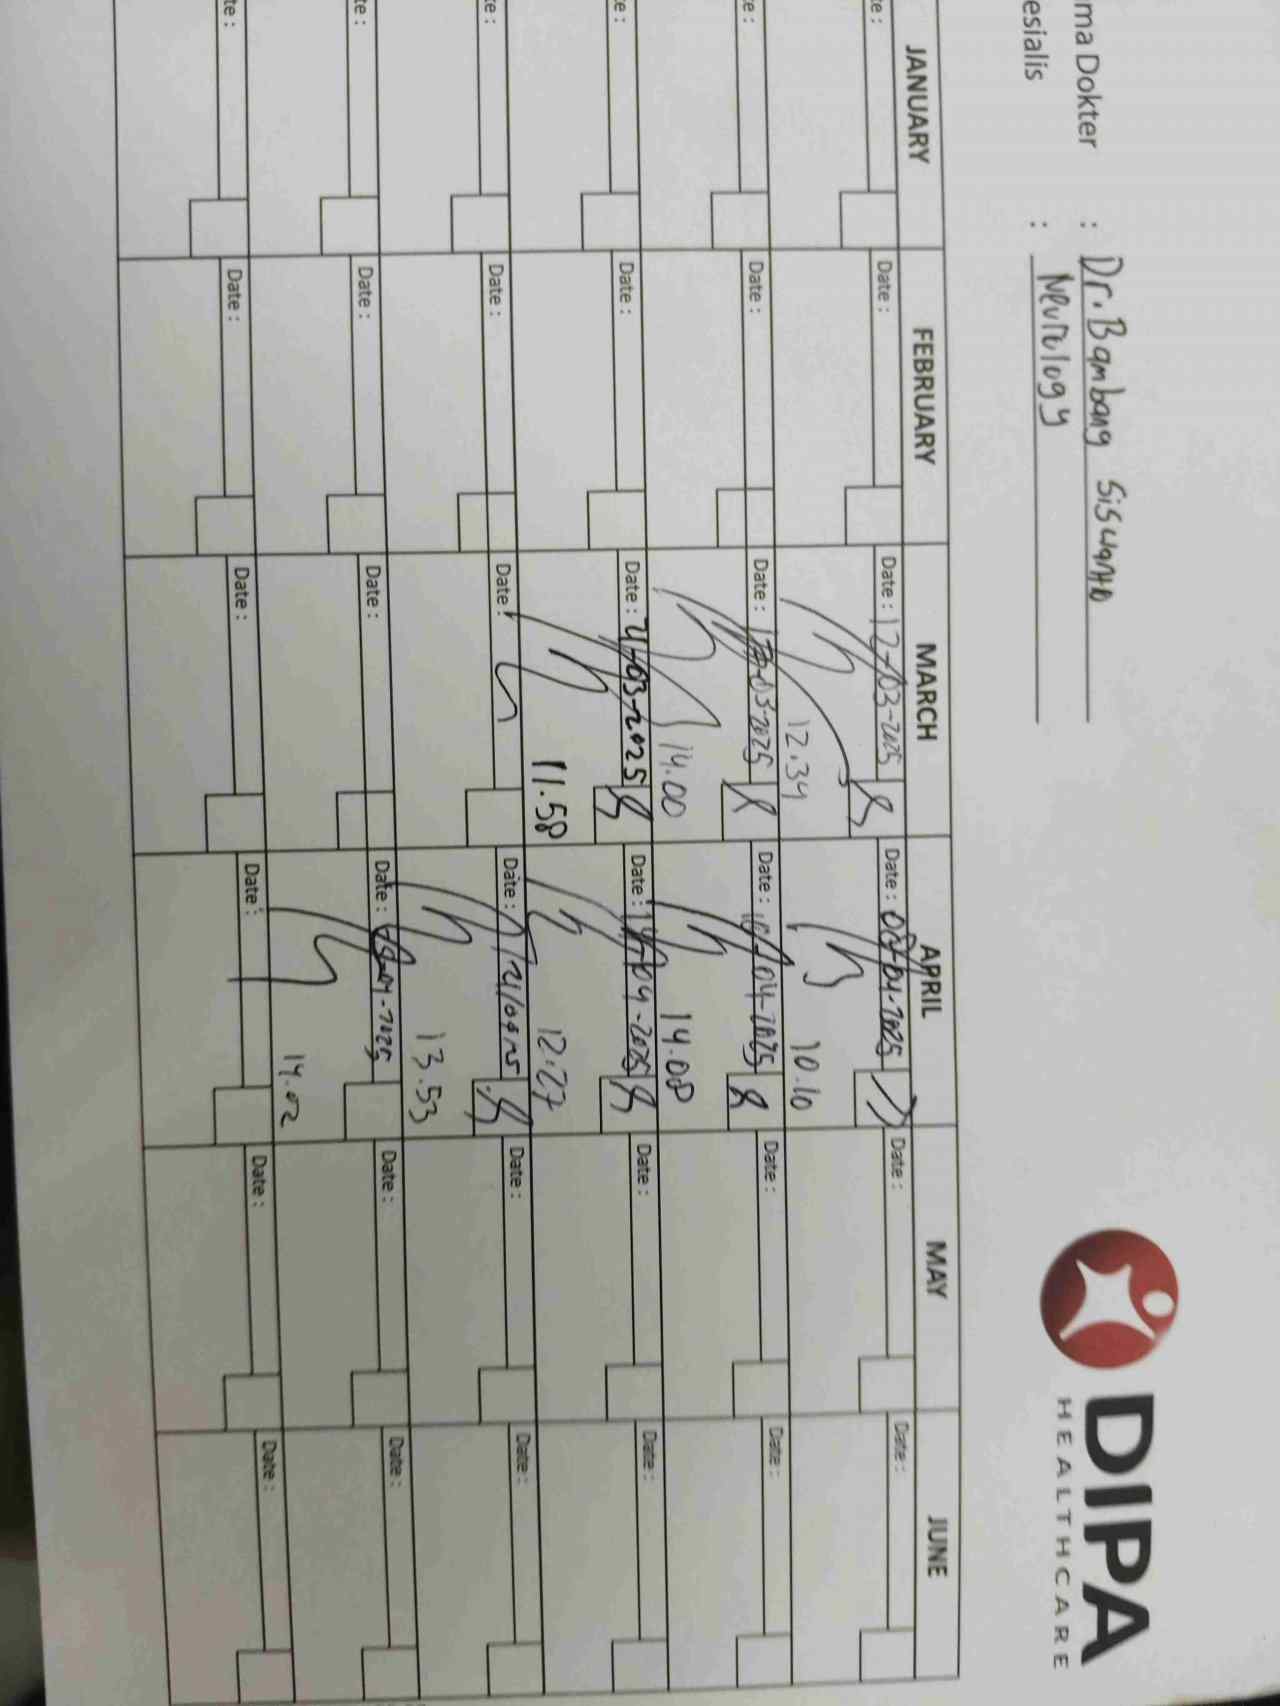 DIPA
HEALTHCARE
ma Dokter : Dr. Bambang Siswanto
esialis : Neurology
JANUARY FEBRUARY MARCH APRIL MAY JUNE
te : Date : Date : 12-03-2025 Date : 08-04-2025 Date : Date :
12.34 10.10
te : Date : Date : 17-03-2025 Date : 10-04-2025 Date : Date :
14.00 14.08
te : Date : Date : 21-03-2025 Date : 14-04-2025 Date : Date :
11.58 12.27
te : Date : Date : Date : Date : Date :
13.53
te : Date : Date : Date : -04-2025 Date : Date :
14.02
te : Date : Date : Date : Date : Date :